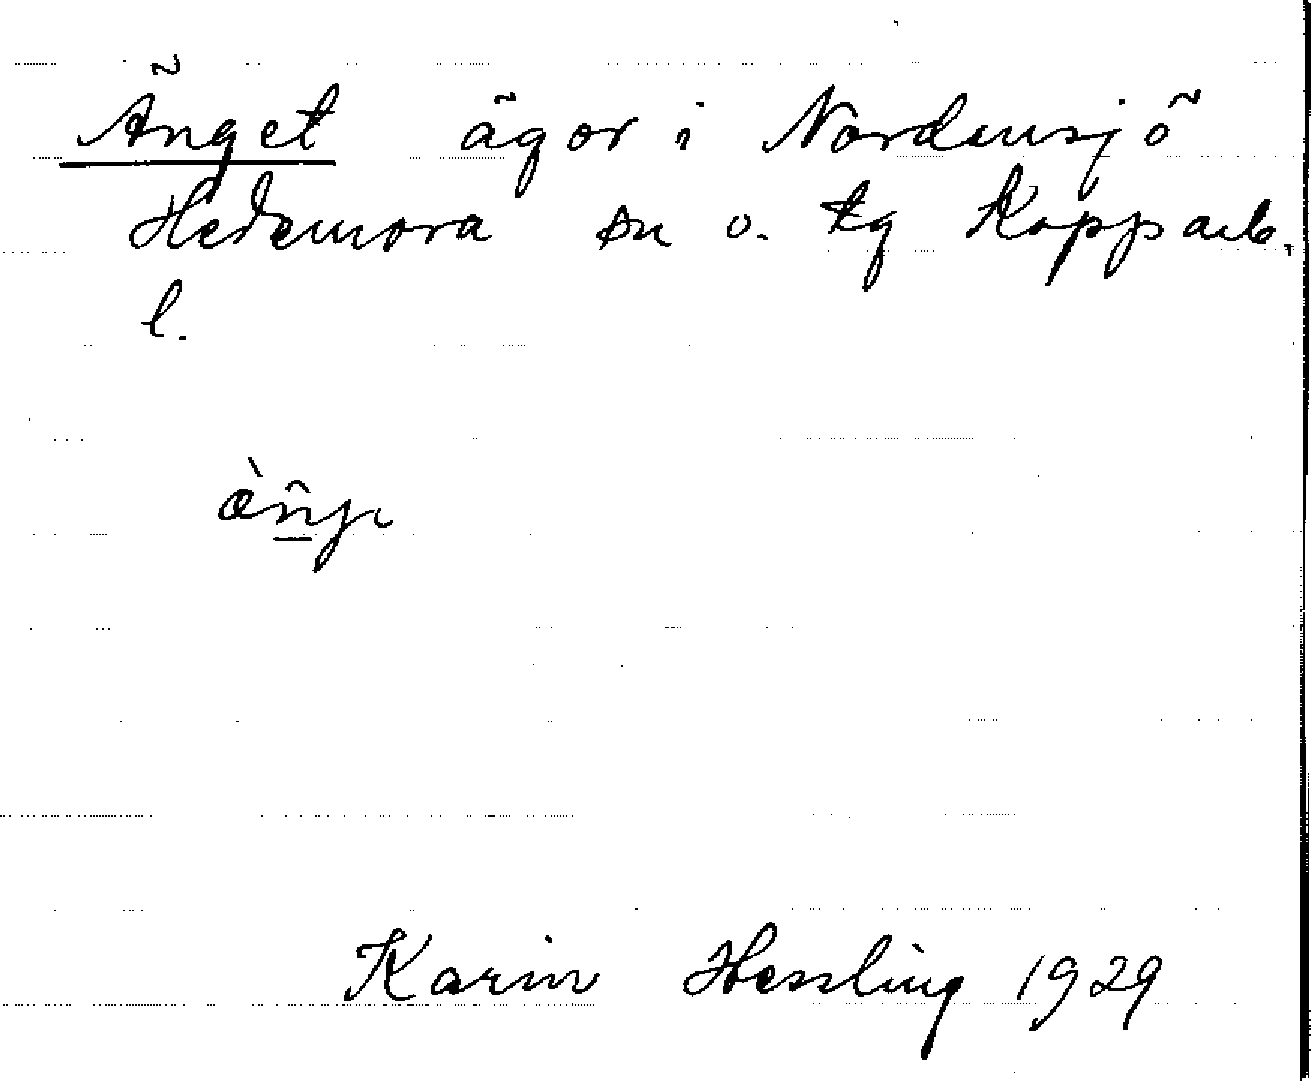 Änget ägor i Nordensjö
Hedemora sn o. tg Kopparb.
l.
Karin Hessling 1929